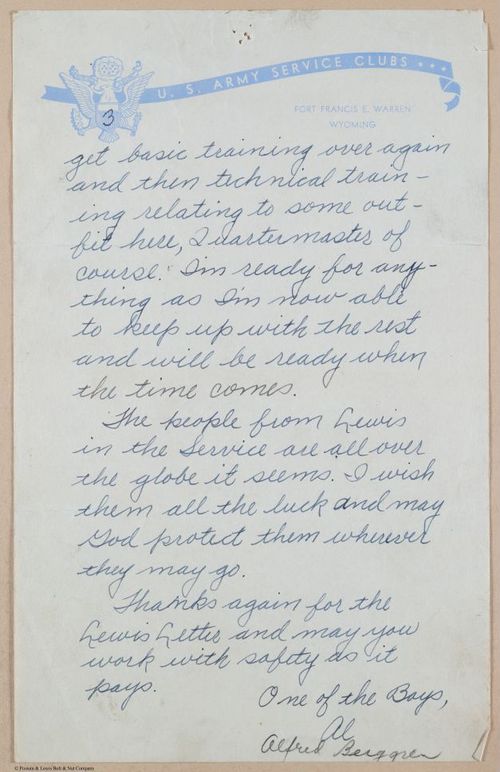 U. S. ARMY SERVICE CLUBS
FORT FRANCIS E. WARREN
WYOMING
3
get basic training over again
and then technical train-
ing relating to some out-
fit here, Quartermaster of
course. I'm ready for any-
thing as I'm now able
to keep up with the rest
and will be ready when
the time comes.
The people from Lewis
in the Service are all over
the globe it seems. I wish
them all the luck and may
God protect them wherever
they may go.
Thanks again for the
Lewis Letter and may you
work with safety as it
pays.
One of the Boys,
Al
Alfred Berggren
© Pioneers & Lewis Bolt & Nut Company